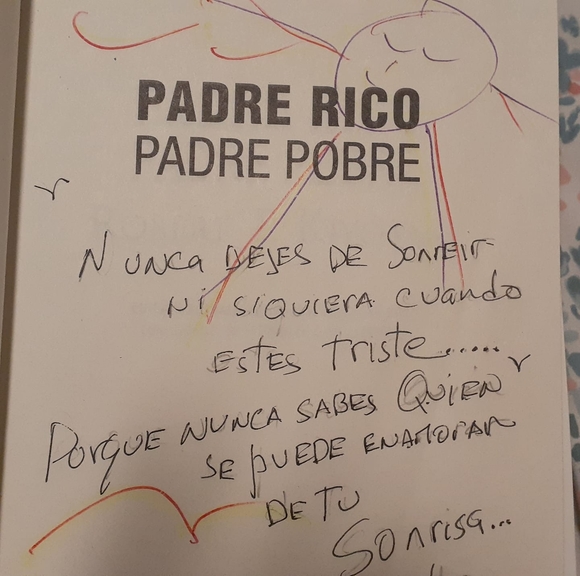 PADRE RICO
PADRE POBRE
NUNCA DEJES DE SONREIR
NI SIQUIERA CUANDO
ESTES TRISTE......
PORQUE NUNCA SABES QUIEN
SE PUEDE ENAMORAR
DE TU
SONRISA...